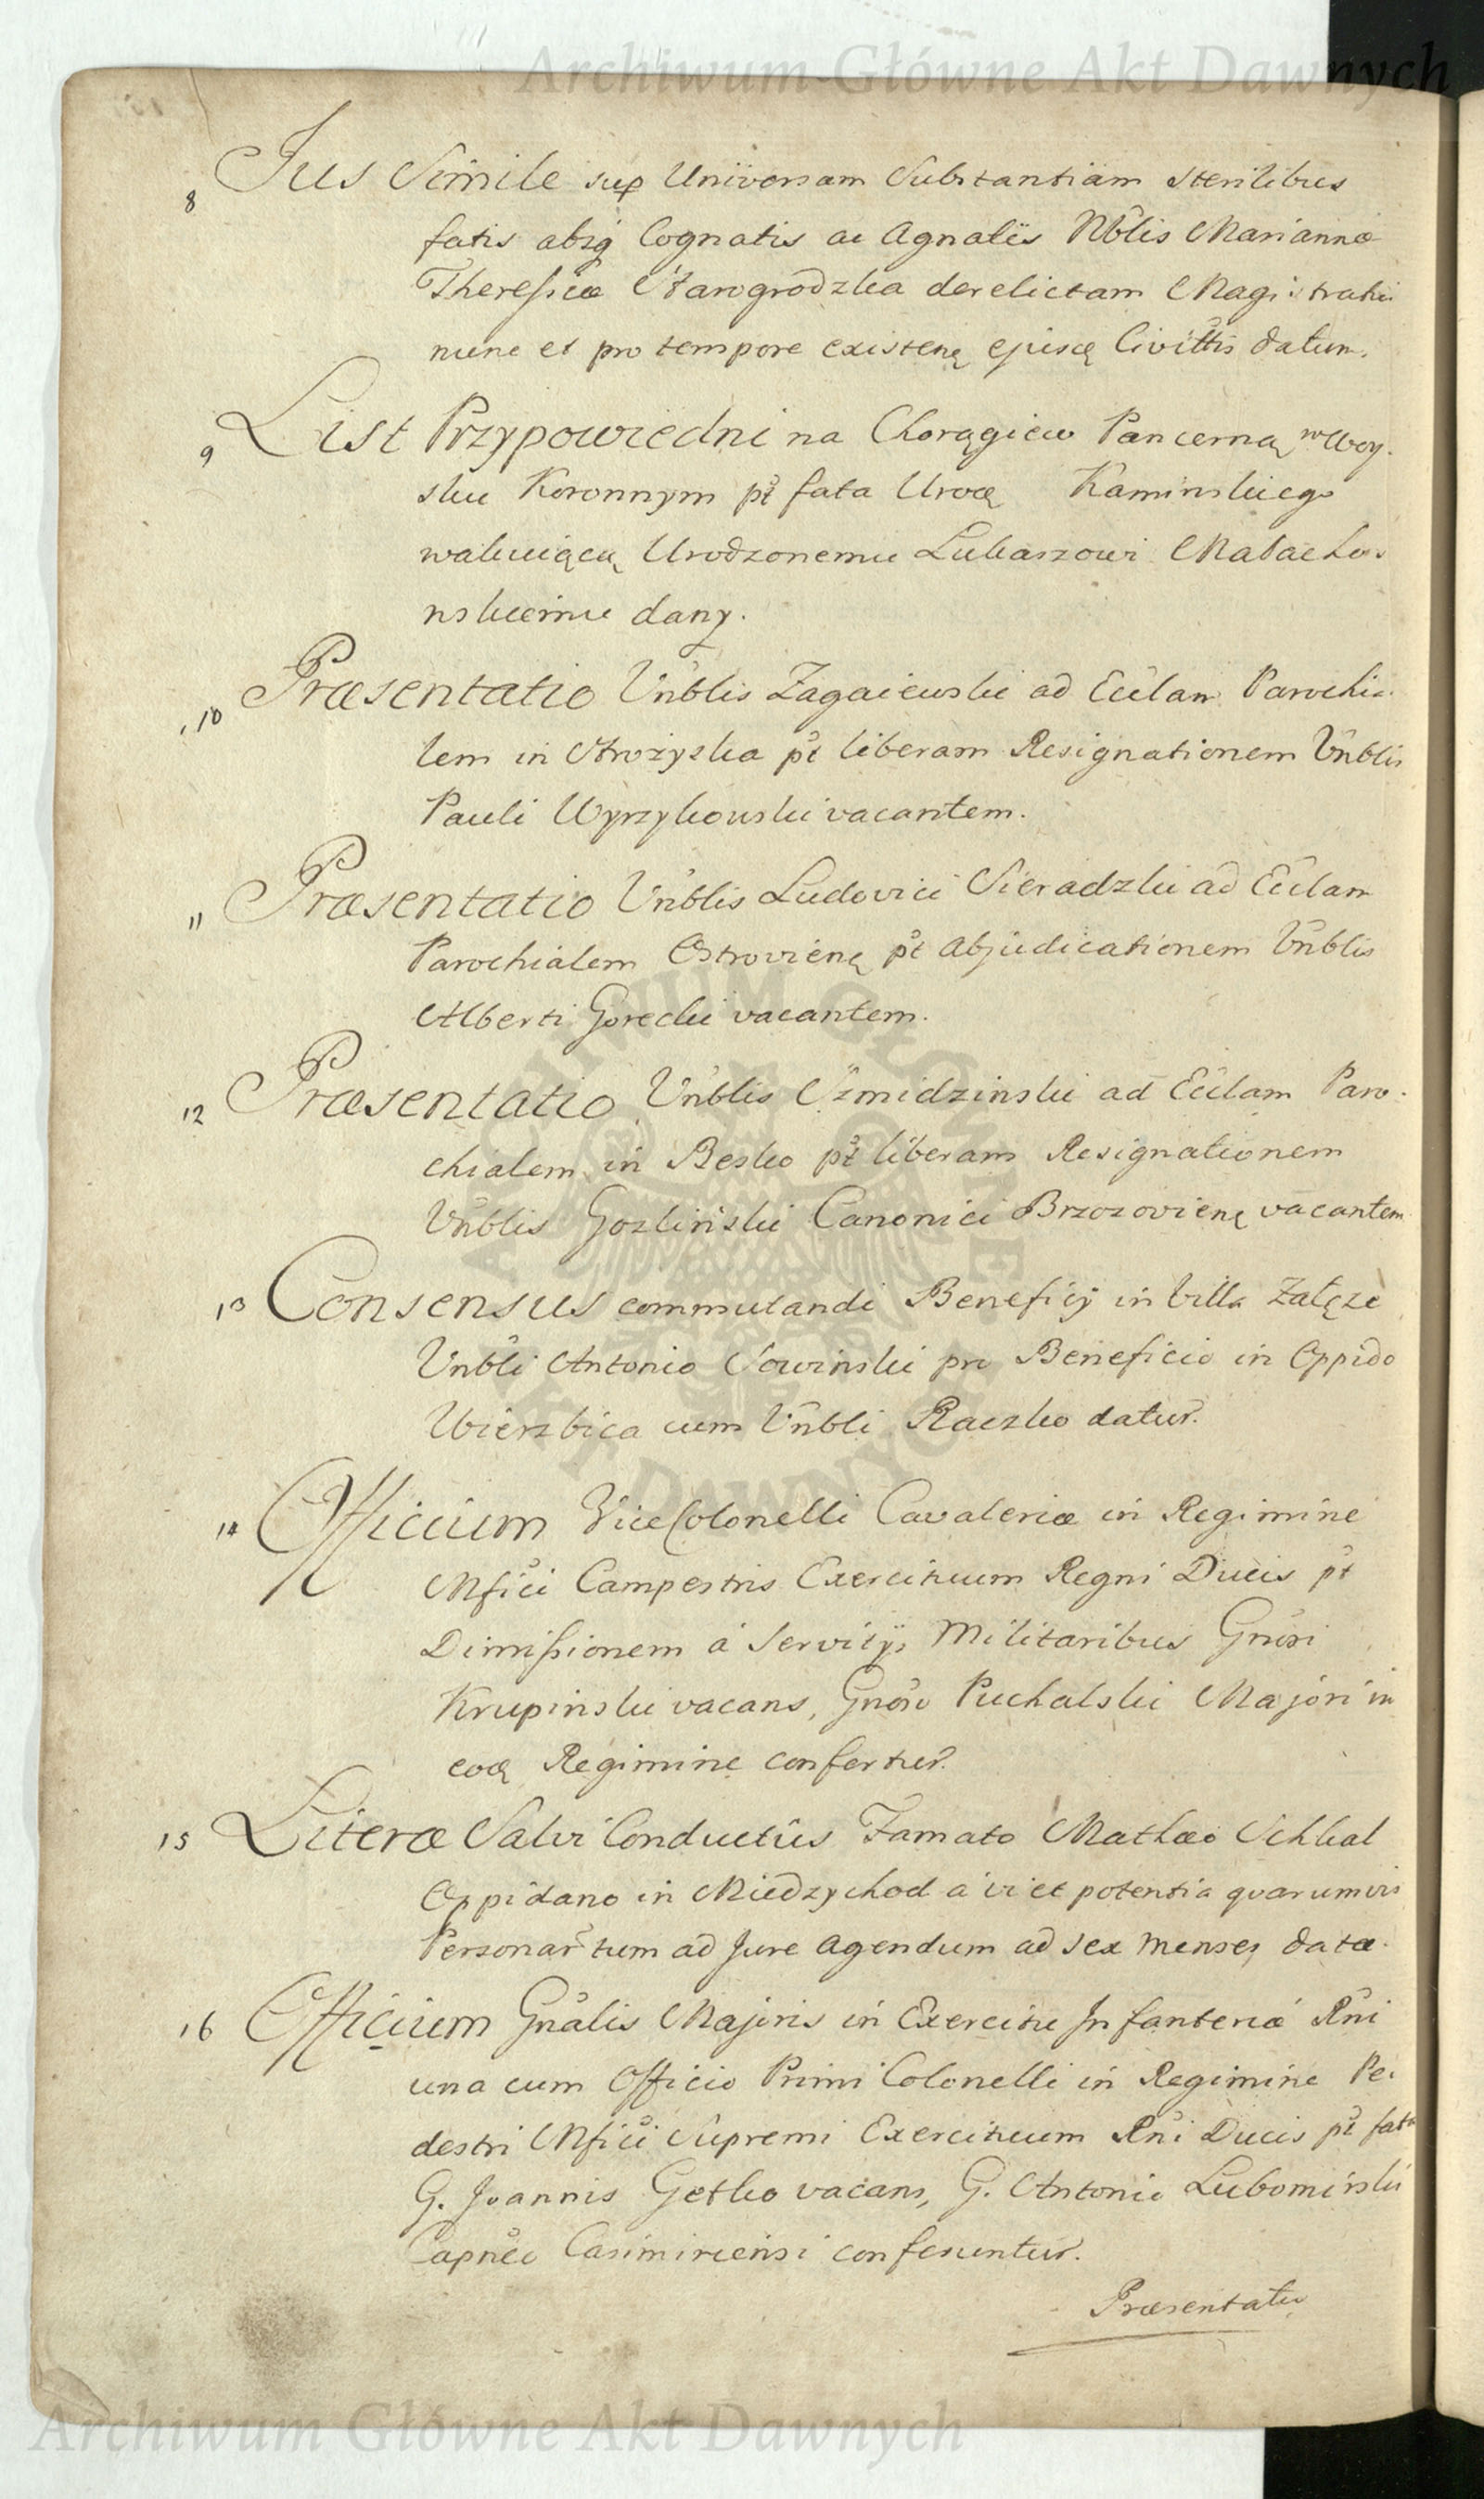 Archiwum Główne Akt Dawnych
8 Jus Simile sup Universam Substantiam sterilibus
fatis absq Cognatis ac Agnatis Nblis Mariannæ
Theresiæ Starogrodzka derelictam Magistratui
nunc et pro tempore existenę ejuscę Civittis datum.
9 List Przypowiedni na Chorągiew Pancerną w Woy-
sku Koronnym pt fata Uroę Kaminskiego
wakuiącą Urodzonemu Łukaszowi Małacho-
nskiemu dany.
10 Præsentatio Vnblis Zagaiewski ad Ecclam Parochia-
lem in Strożyska pt liberam Resignationem Vnblis
Pauli Wyrzykowski vacantem.
11 Præsentatio Vnblis Ludovici Sieradzki ad Ecclam
Parochialem Ostrovienę pt abjudicationem Vnblis
Alberti Gorecki vacantem.
12 Præsentatio Vnblis Szmidzinski ad Ecclam Paro-
chialem in Besko pt liberam Resignationem
Vnblis Gozliński Canonici Brzozovienę vacantem
13 Consensus commutandi Beneficij in Villa Załęze
Vnbli Antonio Sowinski pro Beneficio in Oppido
Wierzbica cum Vnbli Raczko datur.
14 Officium Vice Colonelli Cavaleriæ in Regimine
Mfici Campestris Exercituum Regni Ducis pt
Dimissionem á Servitijs Militaribus Gnosi
Krupinski vacans, Gnoso Puchalski Majori in
eoę Regimine confertur.
15 Literæ Salvi Conductûs Famato Mathæo Schkal
Oppidano in Miedzychod a vi et potentia quarumvis
Personar tum ad Jure agendum ad sex Menses datæ.
16 Officium Gnalis Majoris in Exercitu Infanteriæ Rni
una cum Officio Primi Colonelli in Regimine Pe-
destri Mfici Supremi Exercituum Rni Ducis pt fata
G. Joannis Getko vacans, G. Antonio Lubomirski
Capneo Casimiriensi conferuntur.
Præsentatio
Archiwum Główne Akt Dawnych